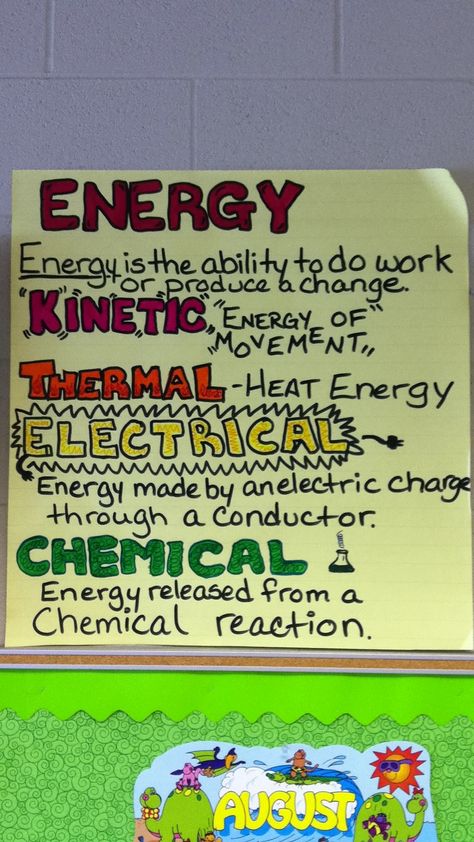 ENERGY
Energy is the ability to do work
or produce a change.
"KINETIC" "ENERGY OF
MOVEMENT"
THERMAL - HEAT Energy
ELECTRICAL
Energy made by an electric charge
through a conductor.
CHEMICAL
Energy released from a
Chemical reaction.
AUGUST